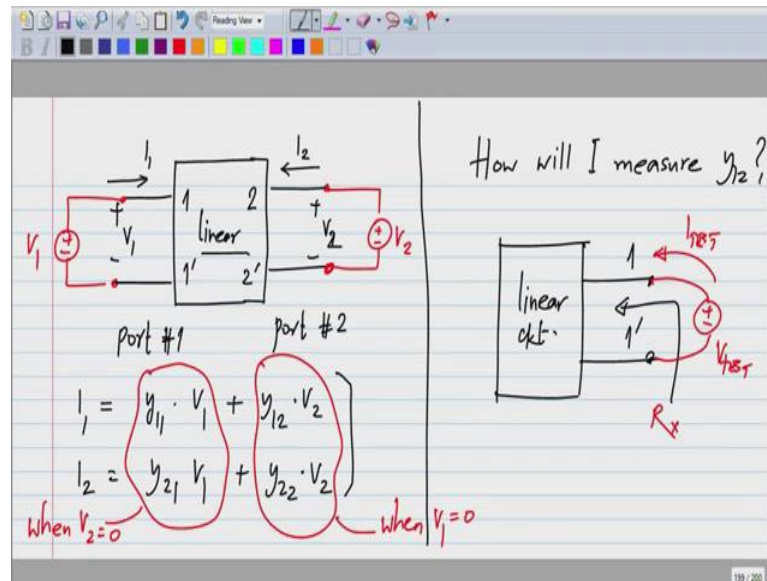 Reading View
B I
I₁
I₂
1
2
+
V₁
-
linear
+
V₂
-
V₁
+
-
+
-
V₂
1'
2'
port #1
port #2
I₁ = y₁₁ · V₁ + y₁₂ · V₂
I₂ = y₂₁ V₁ + y₂₂ · V₂
when V₂=0
when V₁=0
How will I measure y₁₂?
I_TEST
1
linear
ckt.
1'
+
-
V_TEST
Rₓ
199 / 200